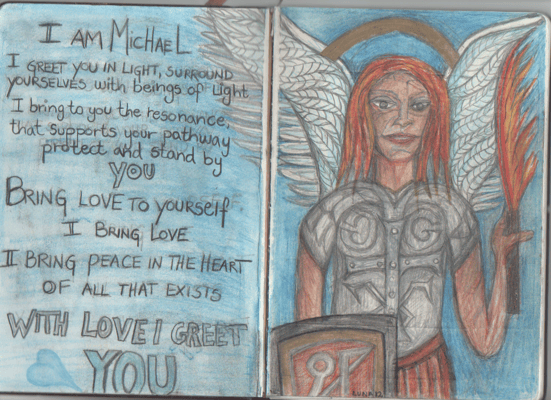 I AM MICHAEL
I GREET YOU IN LIGHT, SURROUND
YOURSELVES with beings of Light
I bring to you the resonance,
that supports your pathway
protect and stand by
YOU
BRING LOVE TO yourself
I BRING LOVE
I BRING PEACE IN THE HEART
OF ALL THAT EXISTS
WITH LOVE I GREET
YOU